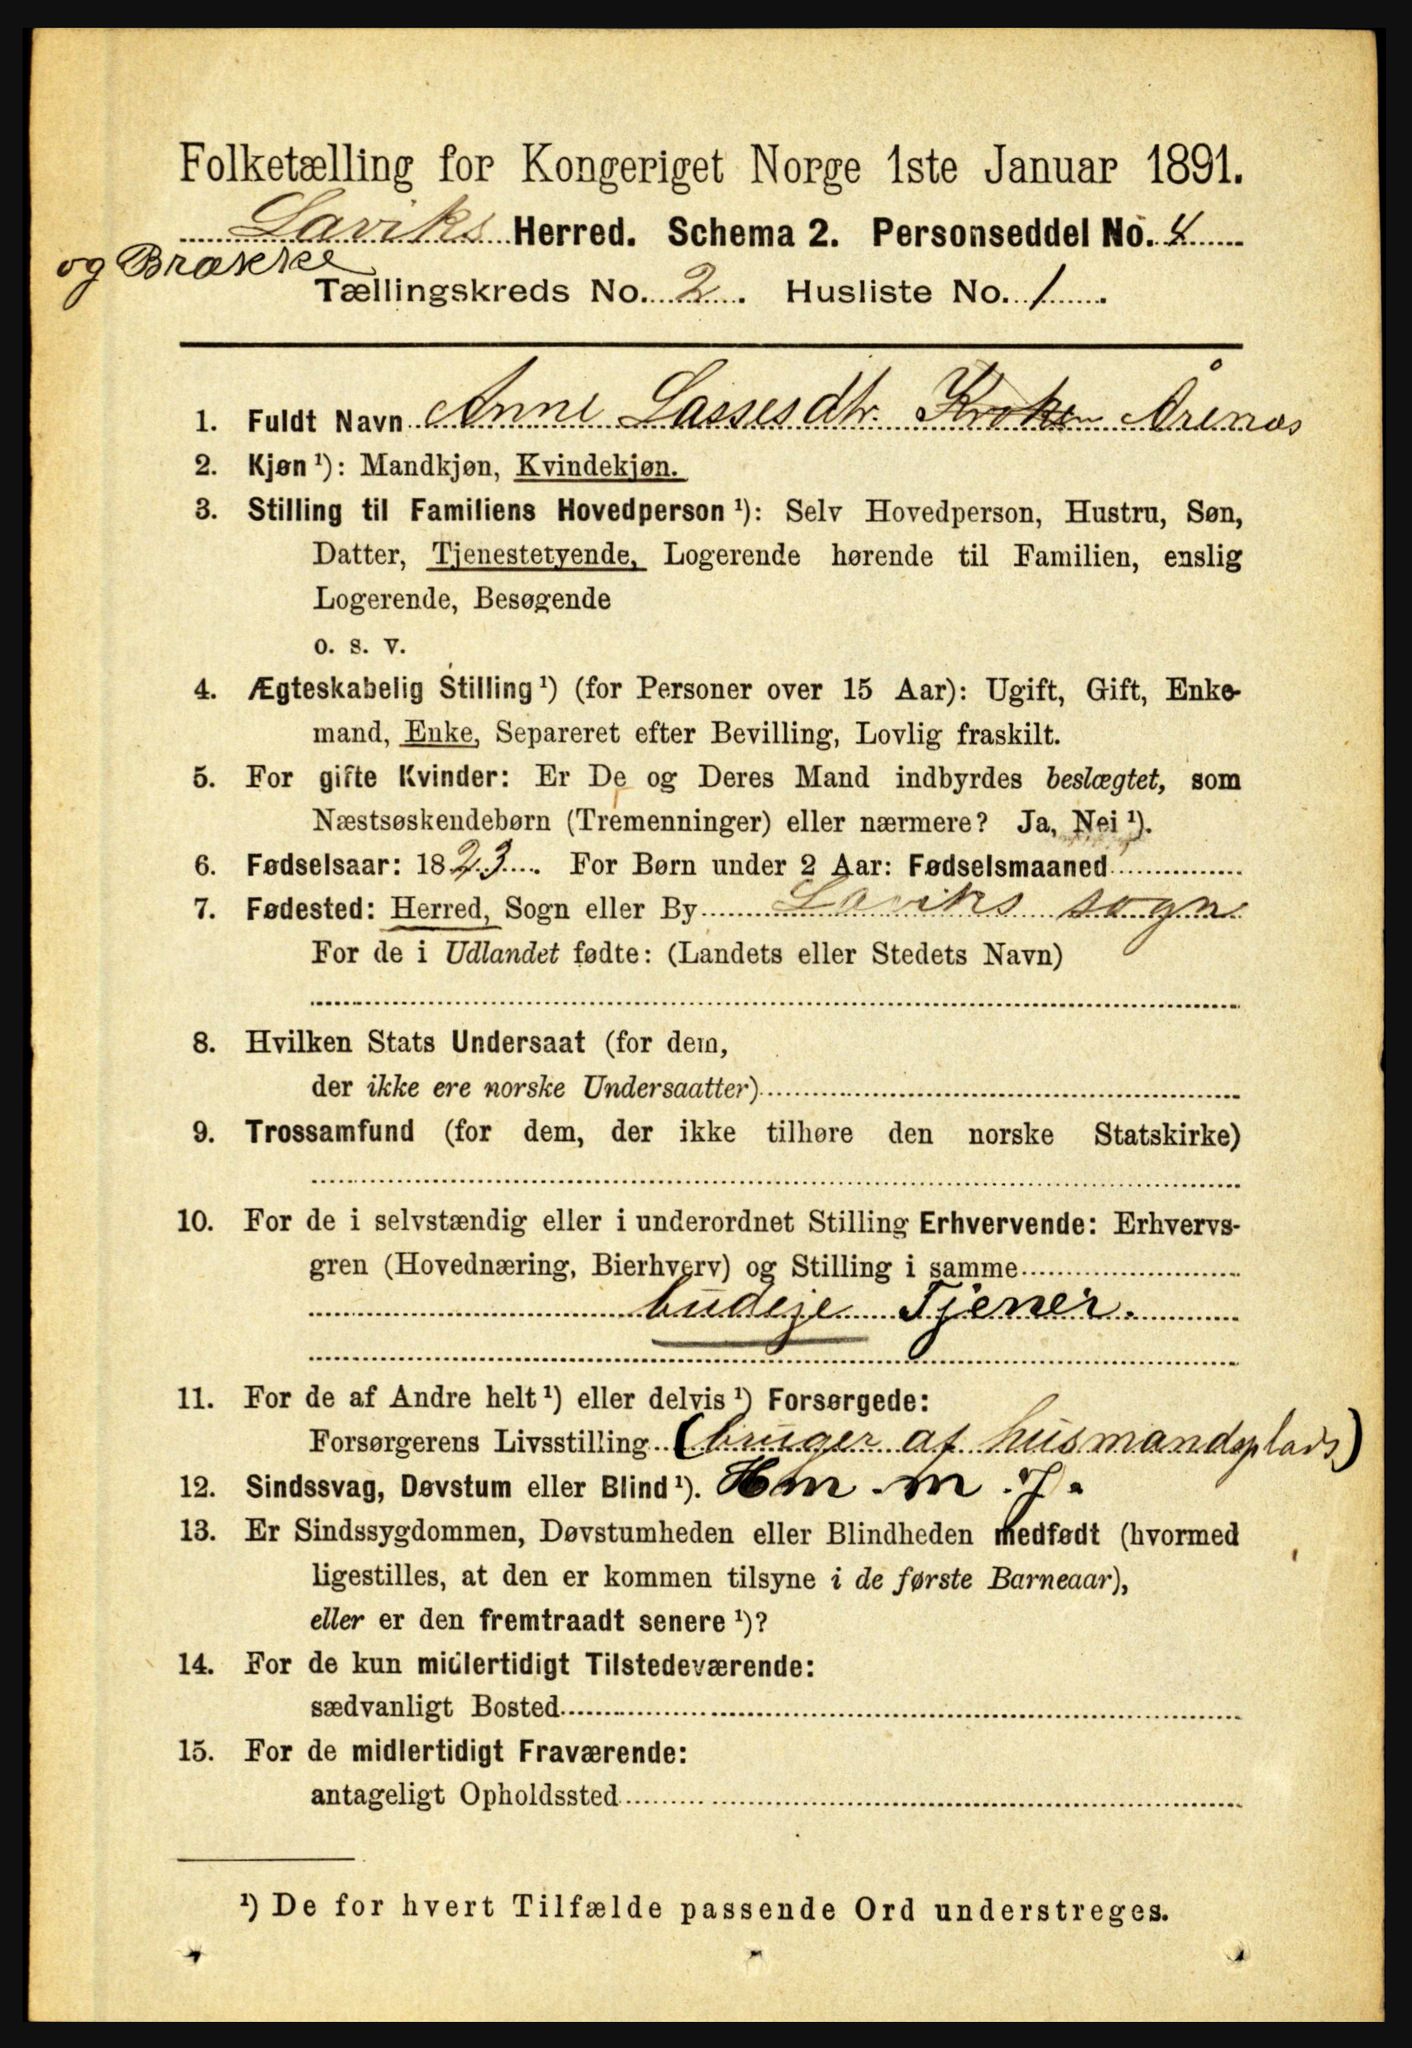 Folketælling for Kongeriget Norge 1ste Januar 1891.
Laviks Herred. Schema 2. Personseddel No. 4
og Brække
Tællingskreds No. 2. Husliste No. 1.
1. Fuldt Navn Anne Lassesdtr. Kroken Årenæs
2. Kjøn¹): Mandkjøn, Kvindekjøn.
3. Stilling til Familiens Hovedperson¹): Selv Hovedperson, Hustru, Søn,
Datter, Tjenestetyende, Logerende hørende til Familien, enslig
Logerende, Besøgende
o. s. v.
4. Ægteskabelig Stilling¹) (for Personer over 15 Aar): Ugift, Gift, Enke-
mand, Enke, Separeret efter Bevilling, Lovlig fraskilt.
5. For gifte Kvinder: Er De og Deres Mand indbyrdes beslægtet, som
Næstsøskendebørn (Tremenninger) eller nærmere? Ja, Nei¹).
6. Fødselsaar: 1823. For Børn under 2 Aar: Fødselsmaaned
7. Fødested: Herred, Sogn eller By Laviks sogn
For de i Udlandet fødte: (Landets eller Stedets Navn)
8. Hvilken Stats Undersaat (for dem,
der ikke ere norske Undersaatter)
9. Trossamfund (for dem, der ikke tilhøre den norske Statskirke)
10. For de i selvstændig eller i underordnet Stilling Erhvervende: Erhvervs-
gren (Hovednæring, Bierhverv) og Stilling i samme
budeje Tjener.
11. For de af Andre helt¹) eller delvis¹) Forsørgede:
Forsørgerens Livsstilling (bruger af husmandsplads)
12. Sindssvag, Døvstum eller Blind¹). Hm. m. J.
13. Er Sindssygdommen, Døvstumheden eller Blindheden medfødt (hvormed
ligestilles, at den er kommen tilsyne i de første Barneaar),
eller er den fremtraadt senere¹)?
14. For de kun midlertidigt Tilstedeværende:
sædvanligt Bosted
15. For de midlertidigt Fraværende:
antageligt Opholdssted
¹) De for hvert Tilfælde passende Ord understreges.